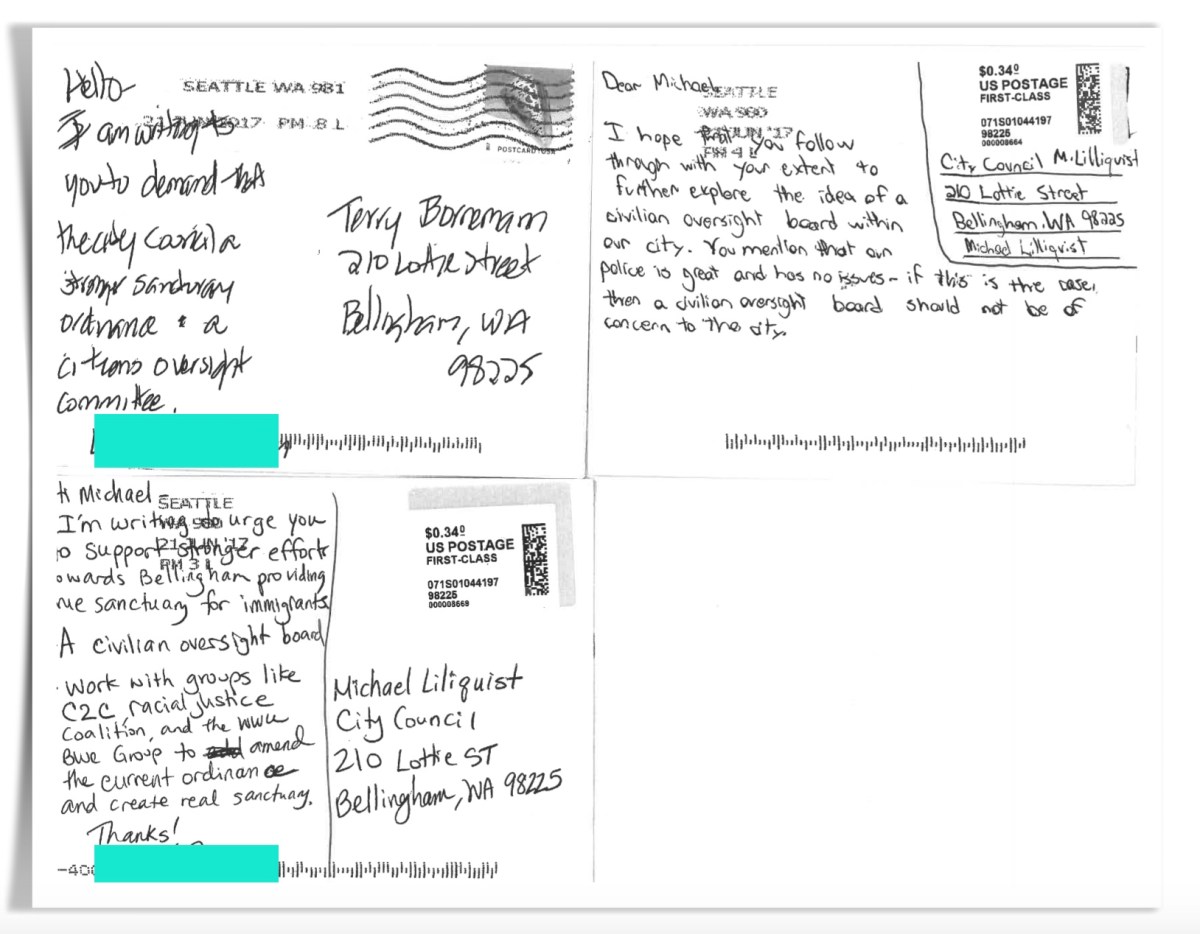 Hello
SEATTLE WA 981
21 JUN 2017 PM 8 L
I am writing to
you to demand that
the city Council a
stronger Sanctuary
ordinance & a
citizens oversight
Committee.
POSTCARD USA
Terry Borneman
210 Lottie Street
Bellingham, WA
98225
Dear Michael,
SEATTLE
WA 980
21 JUN '17
PM 4 L
I hope that you follow
through with your extent to
further explore the idea of a
civilian oversight board within
our city. You mention that our
police is great and has no issues - if this is the case,
then a civilian oversight board should not be of
concern to the city.
$0.34⁰
US POSTAGE
FIRST-CLASS
071S01044197
98225
000008664
City Council M. Lilliquist
210 Lottie Street
Bellingham, WA 98225
Michael Lilliquist
Hi Michael
SEATTLE
WA 980
21 JUN '17
PM 3 L
I'm writing to urge you
o support stronger efforts
owards Bellingham providing
ue sanctuary for immigrants
A civilian oversight board
· Work with groups like
C2C racial justice
Coalition, and the WWU
Bwe Group to amend
the current ordinance
and create real sanctuary.
Thanks!
-400
$0.34⁰
US POSTAGE
FIRST-CLASS
071S01044197
98225
000008669
Michael Liliquist
City Council
210 Lottie ST
Bellingham, WA 98225